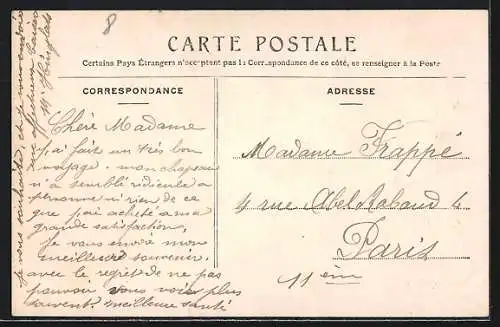 8
CARTE POSTALE
Certains Pays Étrangers n'acceptant pas la Correspondance de ce côté, se renseigner à la Poste
CORRESPONDANCE
Chère Madame
j'ai fait un très bon
voyage. mon chapeau
n'a semblé ridicule a
personne ni rien de ce
que j'ai acheté a ma
grande satisfaction,
je vous envoie mon
meilleurs souvenirs.
avec le regret de ne pas
pouvoir vous voir plus
souvent. meilleure santé
je vous souhaite, et je vous envoie
mon affectueux
ADRESSE
Madame Frappé
4 rue Abel Rabaud 4
Paris
11 ème